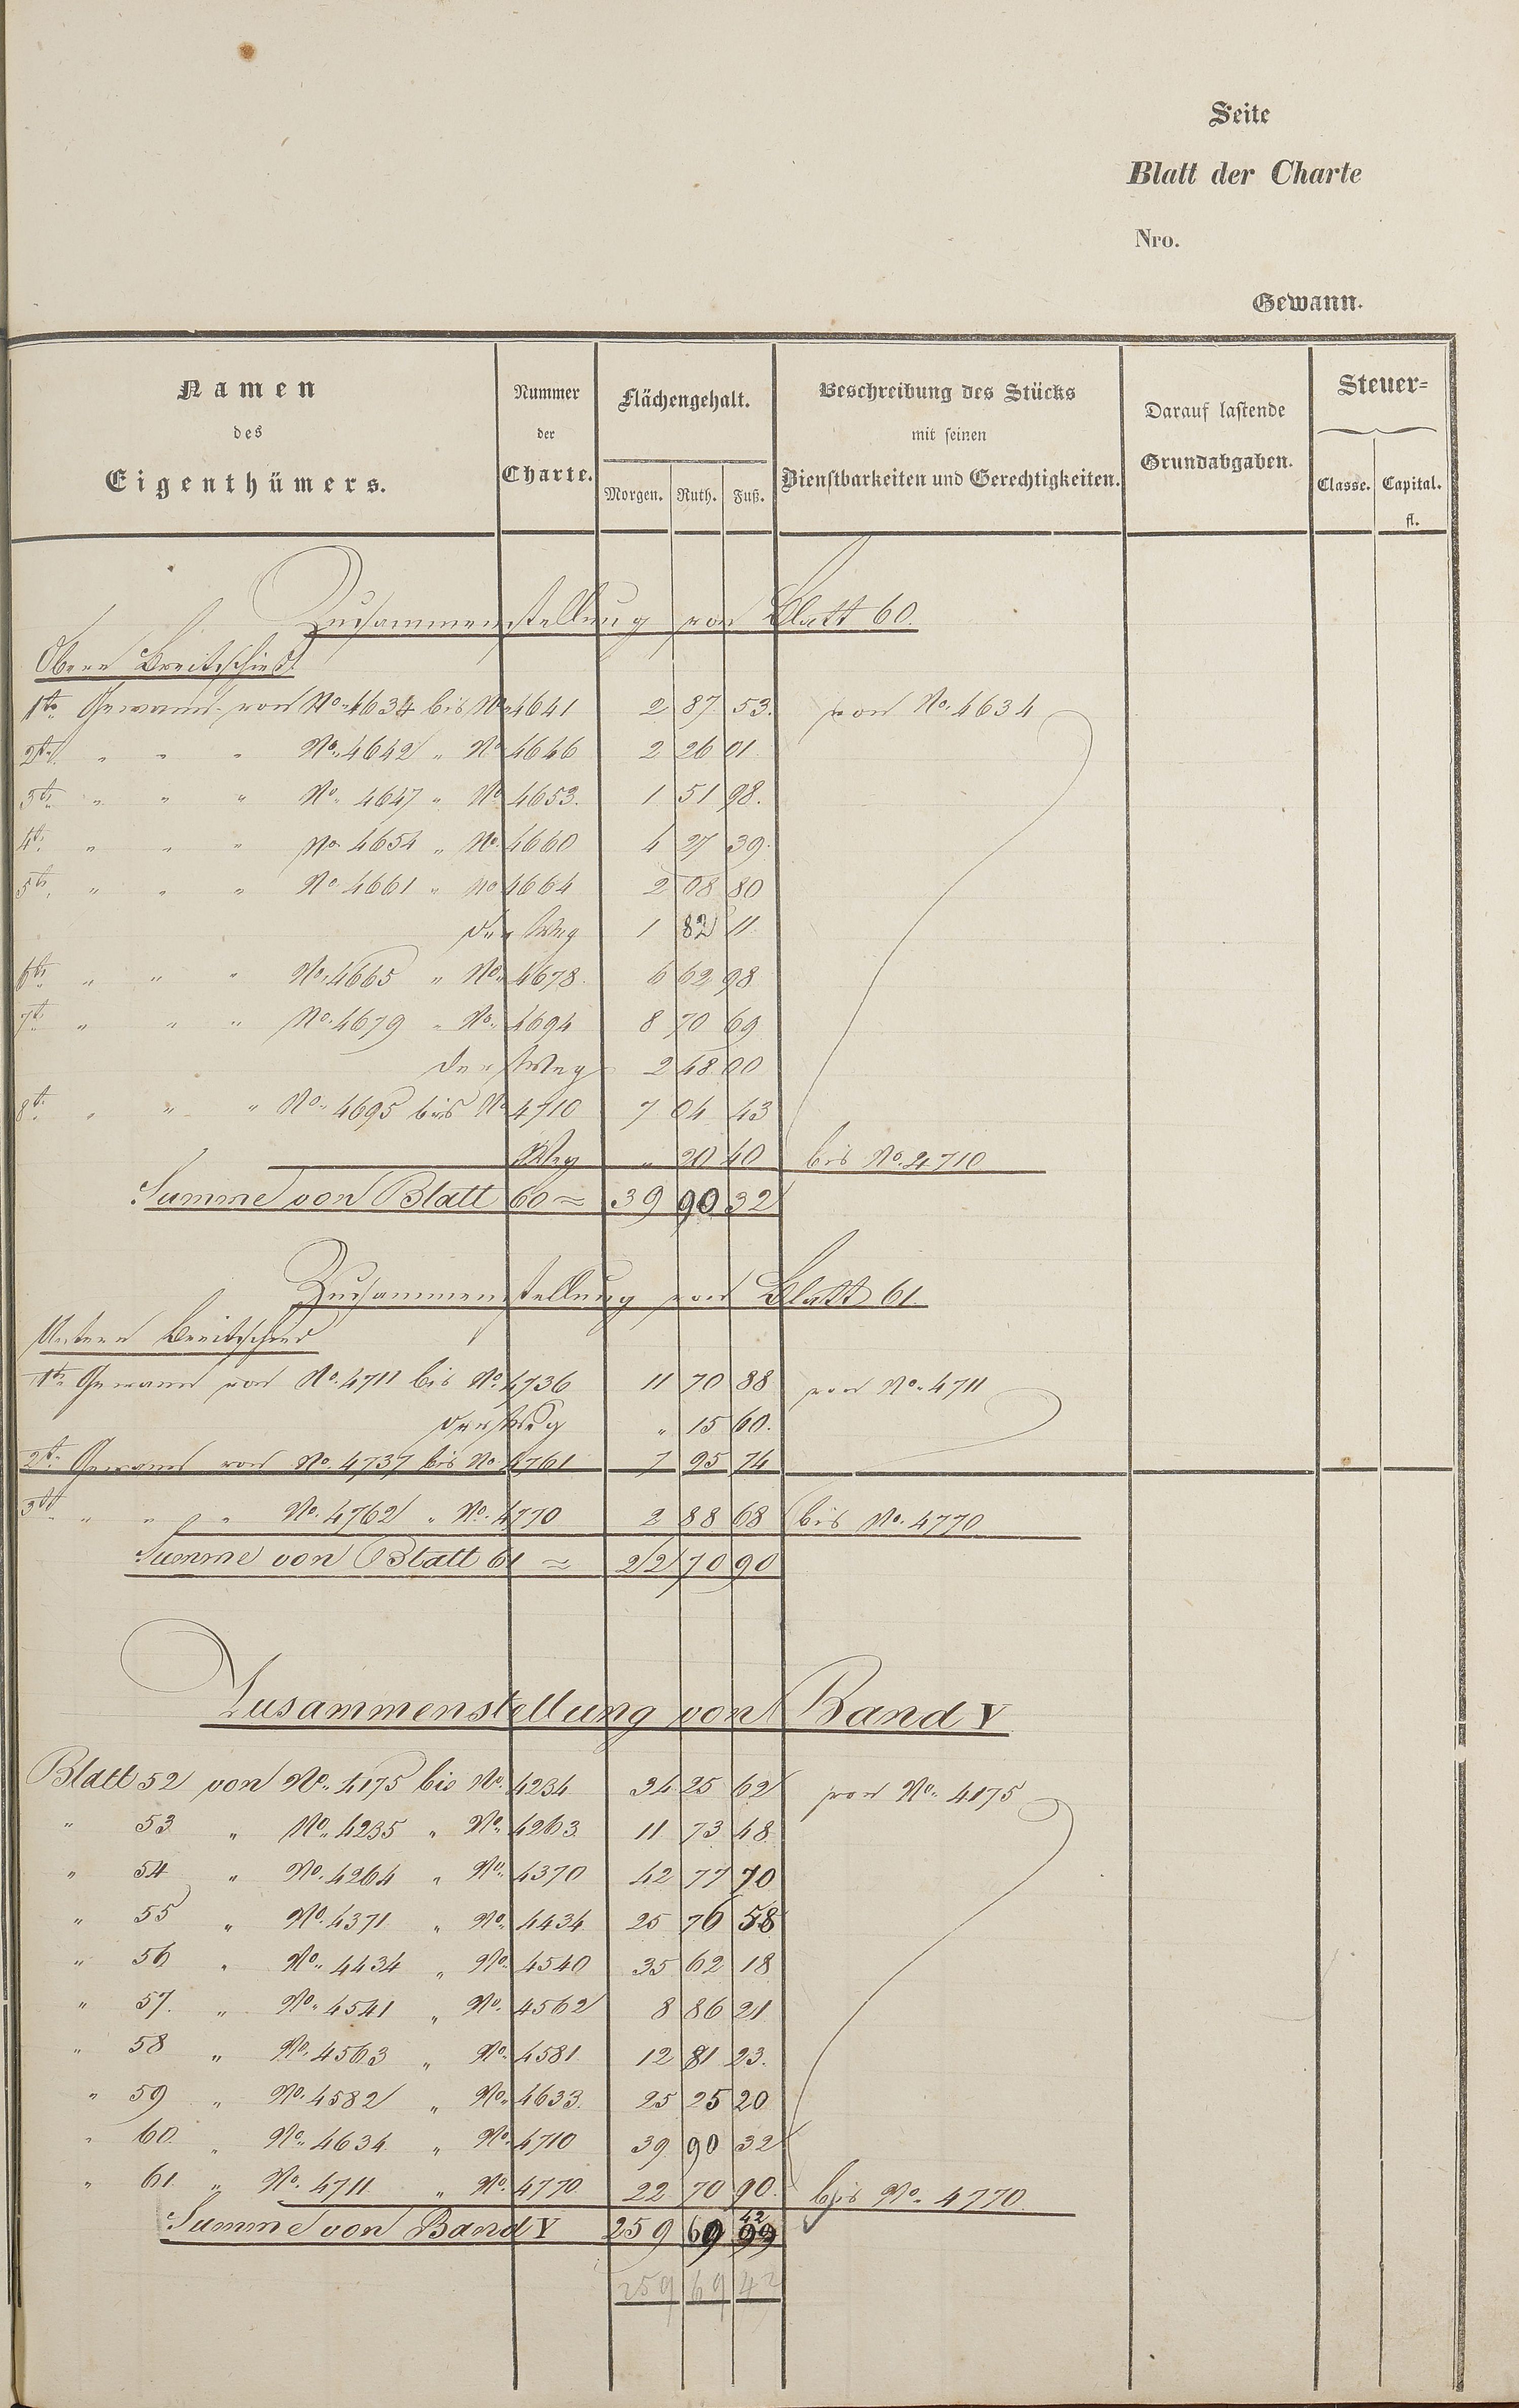 Seite
Blatt der Charte
Nro.
Gewann.
Namen des Eigenthümers.
Nummer der Charte.
Flächengehalt.
Morgen. Ruth. Fuß.
Beschreibung des Stücks mit seinen Dienstbarkeiten und Gerechtigkeiten.
Darauf lastende Grundabgaben.
Steuer=
Classe. Capital.
fl.
Zusammenstellung von Blatt 60.
Obern Breitschied
1te Gewann von No. 4634 bis No. 4641 2 87 53. von No. 4634
2te " " " No. 4642 " No. 4646 2 26 01.
3te " " " No. 4647 " No. 4653. 1 51 98.
4te " " " No. 4654 " No. 4660 4 27 39.
5te " " " No. 4661 " No. 4664 2 08 80
der Weg 1 82 11.
6te " " " No. 4665 " No. 4678. 6 62 98
7te " " " No. 4679 " No. 4694 8 70 69
der Weg 2 48 00
8te " " " No. 4695 bis No. 4710 7 04 43
Weg " 20 40 bis No. 4710
Summe von Blatt 60 = 39 90 32
Zusammenstellung von Blatt 61.
Untern Breitschied
1te Gewann von No. 4711 bis No. 4736 11 70 88 von No. 4711
der Weg " 15 60.
2te Gewann von No. 4737 bis No. 4761 7 95 74
3te " " " No. 4762 " No. 4770 2 88 68 bis No. 4770
Summe von Blatt 61 = 22 70 90
Zusammenstellung von Band V
Blatt 52 von No. 4175 bis No. 4234 34 25 62 von No. 4175
" 53 " No. 4235 " No. 4263. 11 73 48
" 54 " No. 4264 " No. 4370 42 77 70
" 55 " No. 4371 " No. 4434. 25 76 58
" 56 " No. 4434 " No. 4540 35 62 18
" 57. " No. 4541 " No. 4562 8 86 21
" 58 " No. 4563 " No. 4581 12 81 23.
" 59 " No. 4582 " No. 4633. 25 25 20
" 60. " No. 4634 " No. 4710 39 90 32
" 61. " No. 4711. " No. 4770 22 70 90. bis No. 4770.
42
Summe von Band V 259 69 99
259 69 42